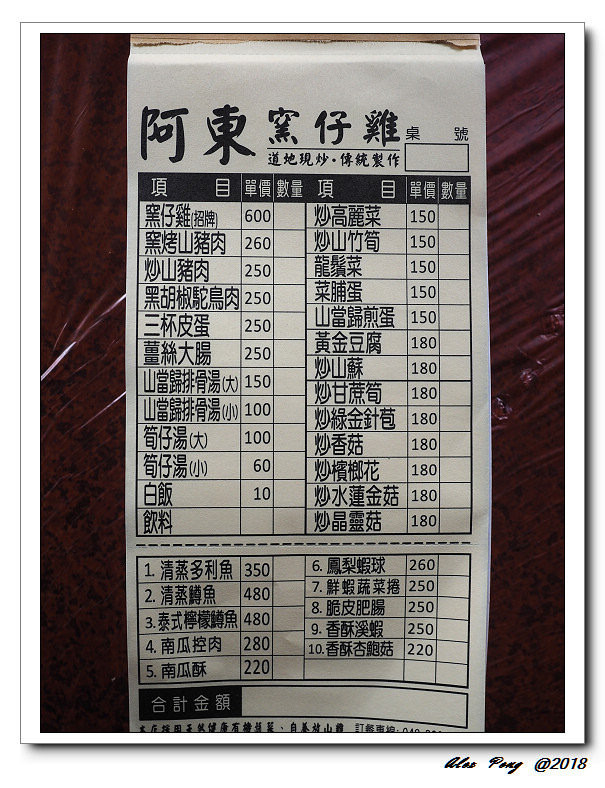 阿東窯仔雞
道地現炒·傳統製作
桌 號
項目 單價 數量 項目 單價 數量
窯仔雞(招牌) 600 炒高麗菜 150
窯烤山豬肉 260 炒山竹筍 150
炒山豬肉 250 龍鬚菜 150
黑胡椒駝鳥肉 250 菜脯蛋 150
三杯皮蛋 250 山當歸煎蛋 150
薑絲大腸 250 黃金豆腐 180
山當歸排骨湯(大) 150 炒山蘇 180
山當歸排骨湯(小) 100 炒甘蔗筍 180
筍仔湯(大) 100 炒綠金針苞 180
筍仔湯(小) 60 炒香菇 180
白飯 10 炒檳榔花 180
飲料 炒水蓮金菇 180
炒晶靈菇 180
1. 清蒸多利魚 350 6. 鳳梨蝦球 260
2. 清蒸鱒魚 480 7. 鮮蝦蔬菜捲 250
3. 泰式檸檬鱒魚 480 8. 脆皮肥腸 250
4. 南瓜控肉 280 9. 香酥溪蝦 250
5. 南瓜酥 220 10. 香酥杏鮑菇 220
合計金額
本店採用天然健康有機蔬菜、自養放山雞 訂餐專線:
Alex Pong @2018